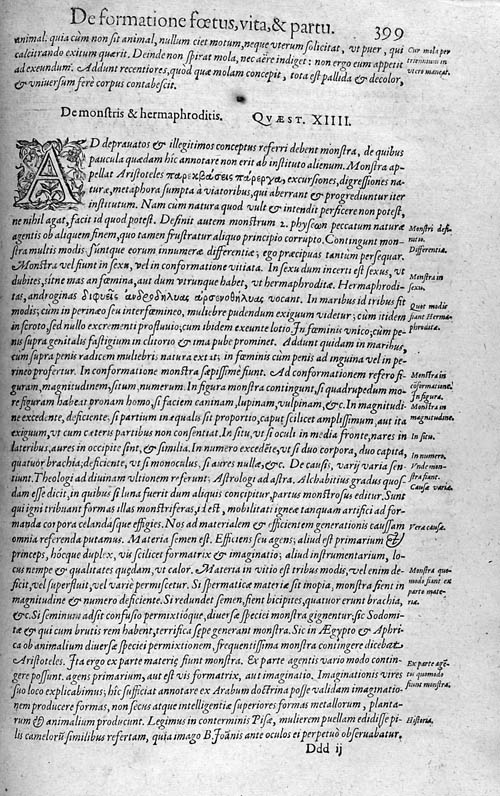 De formatione fœtus, vita, & partu. 399
animal. quia cùm non sit animal, nullum ciet motum, neque vterum solicitat, vt puer, qui
calcitrando exitum quærit. Deinde non spirat mola, nec aëre indiget: non ergo eum appetit
ad exeundum. Addunt recentiores, quod quæ molam concepit, tota est pallida & decolor,
& vniuersum ferè corpus contabescit.
Cur mola per
triennium in
vtero maneat.
De monstris & hermaphroditis. QVÆST. XIIII.
AD deprauatos & illegitimos conceptus referri debent monstra, de quibus
paucula quædam hic annotare non erit ab instituto alienum. Monstra ap-
pellat Aristoteles παρεκβάσεις πάρεργα, excursiones, digressiones na-
turæ, metaphora sumpta à viatoribus, qui aberrant & progrediuntur iter
institutum. Nam cùm natura quod vult & intendit perficere non potest,
ne nihil agat, facit id quod potest. Definit autem monstrum 2. physeων peccatum naturæ
agentis ob aliquem finem, quo tamen frustratur aliquo principio corrupto. Contingunt mon-
stra multis modis: suntque eorum innumeræ differentiæ; ego præcipuas tantùm persequar.
Monstra vel fiunt in sexu, vel in conformatione vitiata. In sexu dum incerti est sexus, vt
dubites, sitne mas an fœmina, aut dum vtrunque habet, vt hermaphroditæ. Hermaphrodi-
tas, androginas διφυεῖς ἀνδρoθήλυας ἀρσενοθήλυας vocant. In maribus id tribus fit
modis; cùm in perinæo seu interfœmineo, muliebre pudendum exiguum videtur; cùm itidem
in scroto, sed nullo excrementi profluuio; cum ibidem exeunte lotio. In fœminis vnico; cùm pe-
nis supra genitalis fastigium in clitorio & ima pube prominet. Addunt quidam in maribus,
cùm supra penis radicem muliebris natura extat; in fœminis cùm penis ad inguina vel in pe-
rineo profertur. In conformatione monstra sæpissimè fiunt. Ad conformationem refero fi-
guram, magnitudinem, situm, numerum. In figura monstra contingunt, si quadrupedum mo-
re figuram habeat pronam homo, si faciem caninam, lupinam, vulpinam, &c. In magnitudi-
ne excedente, deficiente; si partium inæqualis sit proportio, caput scilicet amplissimum, aut ita
exiguum, vt cum cæteris partibus non consentiat. In situ, vt si oculi in media fronte, nares in
lateribus, aures in occipite sint, & similia. In numero excedēte, vt si duo corpora, duo capita,
quatuor brachia; deficiente, vt si monoculus, si aures nullæ, &c. De causis, varij varia sen-
tiunt. Theologi ad diuinam vltionem referunt: Astrologi ad astra. Alchabitius gradus quos-
dam esse dicit, in quibus si luna fuerit dum aliquis concipitur, partus monstrosus editur. Sunt
qui igni tribuant formas illas monstriferas, id est, mobilitati igneæ tanquam artifici ad for-
manda corpora celandasque effigies. Nos ad materialem & efficientem generationis caussam
omnia referenda putamus. Materia semen est. Efficiens seu agens; aliud est primarium &
princeps, hócque duplex, vis scilicet formatrix & imaginatio; aliud instrumentarium, lo-
cus nempe & qualitates quædam, vt calor. Materia in vitio est tribus modis, vel enim de-
ficit, vel superfluit, vel variè permiscetur. Si spermaticæ materiæ sit inopia, monstra fient in
magnitudine & numero deficiente. Si redundet semen, fient bicipites, quatuor erunt brachia,
&c. Si seminum adsit confusio permixtióque, diuersæ speciei monstra gignentur: sic Sodomi-
tæ & qui cum brutis rem habent, terrifica sæpe generant monstra. Sic in Ægypto & Aphri-
ca ob animalium diuersæ speciei permixtionem, frequentissima monstra contingere dicebat
Aristoteles. Ita ergo ex parte materiæ fiunt monstra. Ex parte agentis vario modo contin-
gere possunt. agens primarium, aut est vis formatrix, aut imaginatio. Imaginationis vires
suo loco explicabimus; hîc sufficiat annotare ex Arabum doctrina posse validam imaginatio-
nem producere formas, non secus atque intelligentiæ superiores formas metallorum, planta-
rum & animalium producunt. Legimus in conterminis Pisæ, mulierem puellam edidisse pi-
lis camelorū similibus refertam, quia imago B. Ioānis ante oculos ei perpetuò obseruabatur.
Monstri defi-
nitio.
Differentiæ.
Monstra in
sexu.
Quot modis
fiant Herma-
phroditæ.
Monstra in
cōformatione.
In figura.
Monstra in
magnitudine.
In situ.
In numero.
Vnde mon-
stra fiant.
Causæ variæ.
Vera causa.
Monstra quo-
modo fiant ex
parte mate-
riæ.
Ex parte agē-
tis quomodo
fiunt monstra.
Historia.
Ddd ij